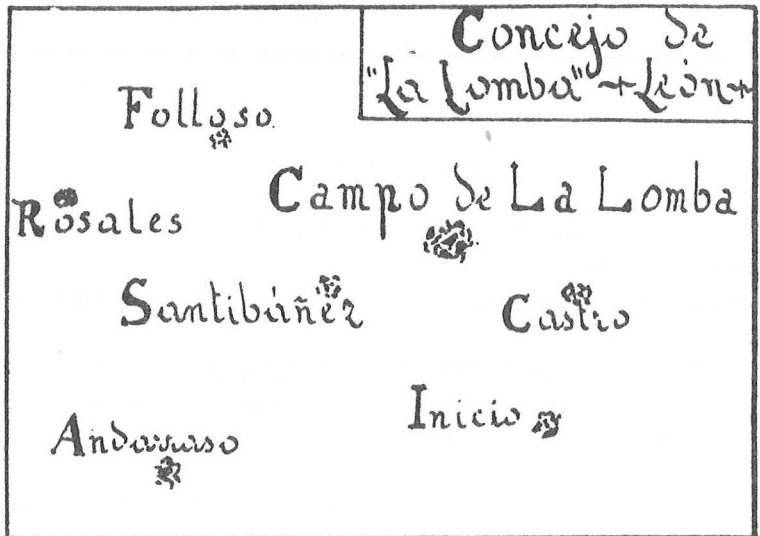 Concejo de
"La Lomba" + León +
Folloso
Campo de La Lomba
Rosales
Santibáñez
Castro
Inicio
Andarraso